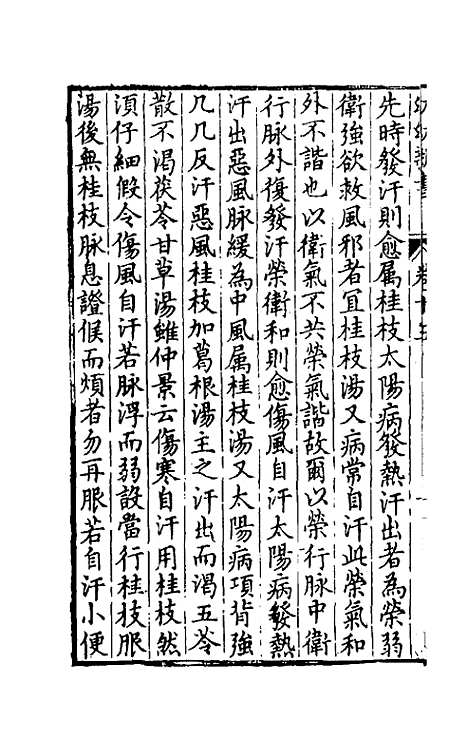 幼幼類書 卷十三
先時發汗則愈属桂枝太陽病發熱汗出者為榮弱
衛強欲救風邪者宜桂枝湯又病常自汗此榮氣和
外不諧也以衛氣不共榮氣諧故爾以榮行脉中衛
行脉外復發汗榮衛和則愈傷風自汗太陽病發熱
汗出惡風脉緩為中風属桂枝湯又太陽病項背強
几几反汗惡風桂枝加葛根湯主之汗出而渴五苓
散不渴茯苓甘草湯雖仲景云傷寒自汗用桂枝然
湏仔細假令傷風自汗若脉浮而弱設當行桂枝服
湯後無桂枝脉息證候而煩者勿再服若自汗小便